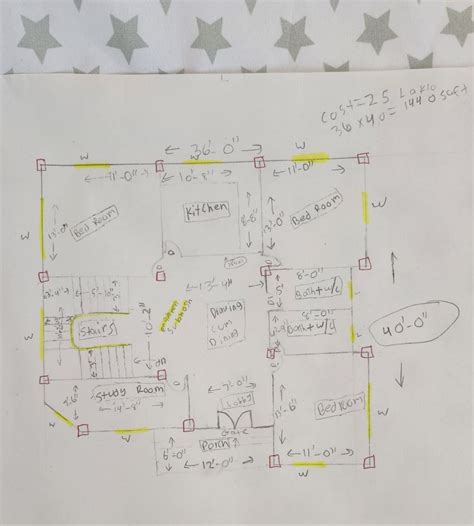 Cost=25 Lakh
36 x 40= 1440 Soft
36'-0"
W
W
W
11'-0"
10'-3"
11'-0"
W
W
Kitchen
Bed Room
8'-6"
13'-0"
Bed Room
D
D
13'-4"
8'-0"
5'
Bath+W/C
5'-10"
10'-2"
Stairs
Drawing
Cum
Dining
8'-0"
Bath+W/C
40'-0"
W
D
Study Room
14'-8"
7'-0"
Lobby
Bedroom
W
W
W
Gate
Porch
6'-0"
12'-0"
11'-0"
W